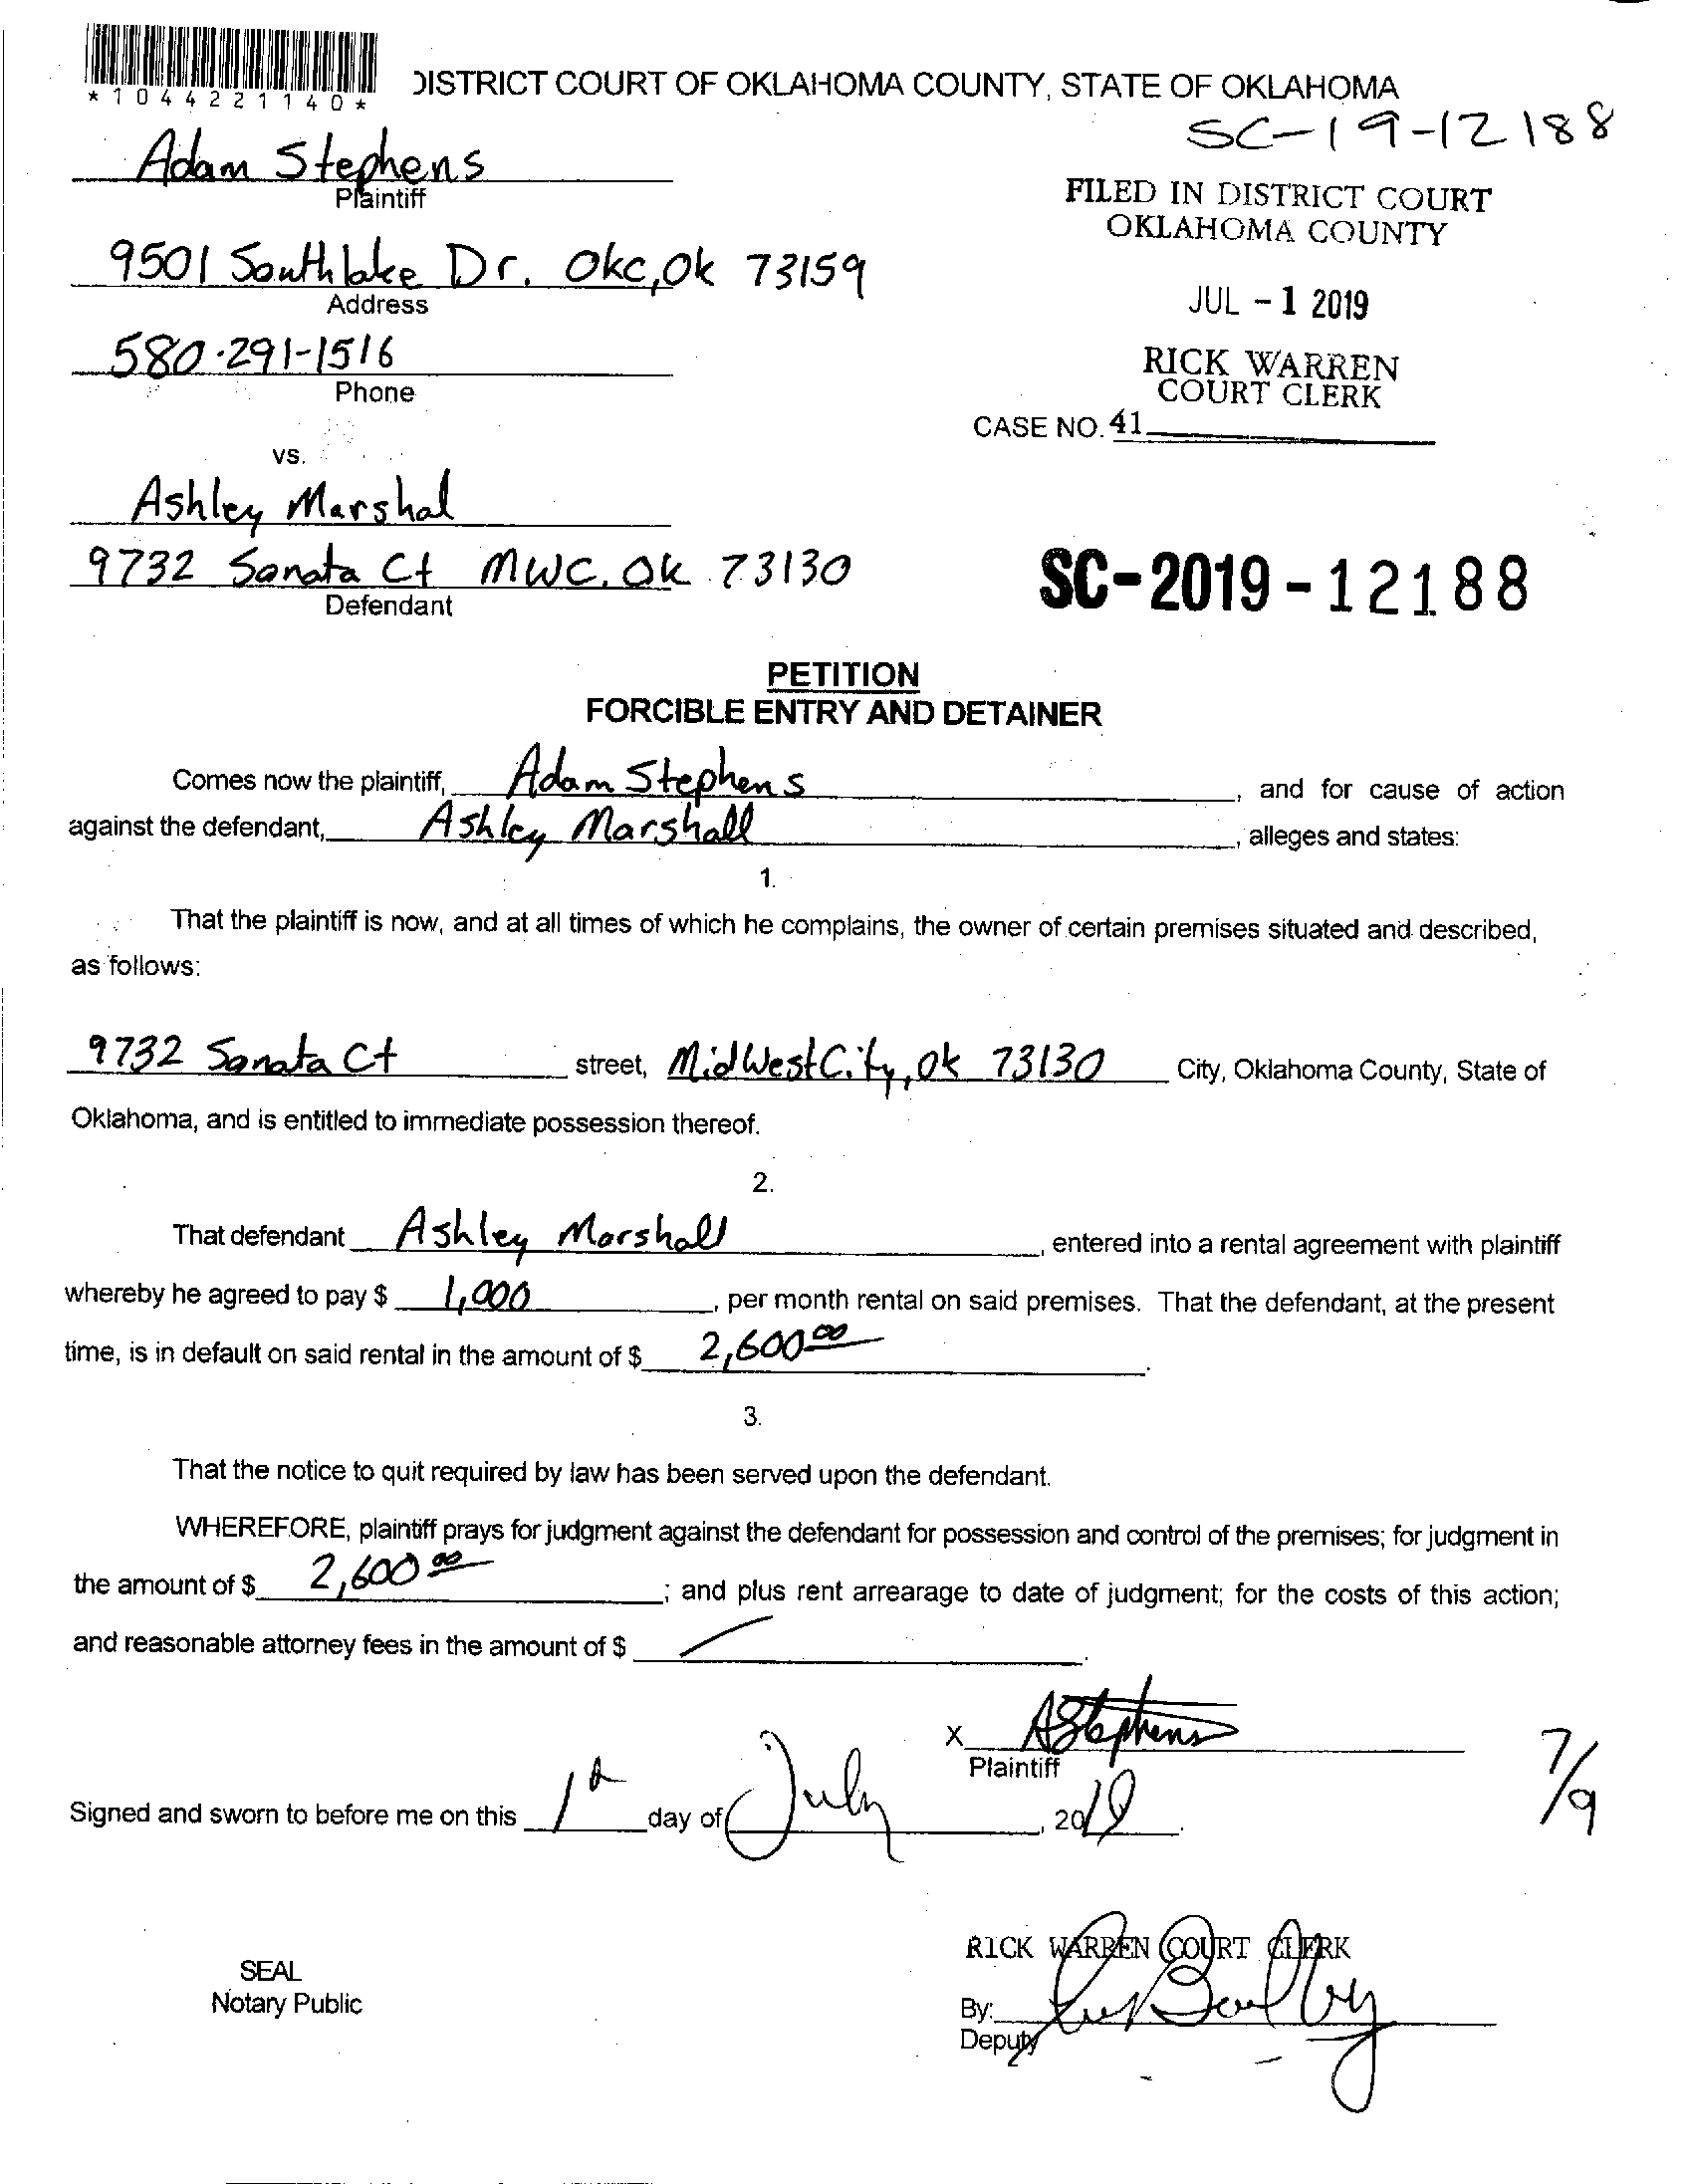 *1044221140*
DISTRICT COURT OF OKLAHOMA COUNTY, STATE OF OKLAHOMA
SC-19-12188
Adam Stephens
Plaintiff
FILED IN DISTRICT COURT
OKLAHOMA COUNTY
9501 Southlake Dr. Okc, Ok 73159
Address
JUL - 1 2019
580-291-1516
Phone
RICK WARREN
COURT CLERK
CASE NO. 41
vs.
Ashley Marshal
9732 Sonata Ct MWC, Ok 73130
Defendant
SC-2019-12188
PETITION
FORCIBLE ENTRY AND DETAINER
Comes now the plaintiff, Adam Stephens, and for cause of action
against the defendant, Ashley Marshall, alleges and states:
1.
That the plaintiff is now, and at all times of which he complains, the owner of certain premises situated and described,
as follows:
9732 Sonata Ct street, MidWest City, Ok 73130 City, Oklahoma County, State of
Oklahoma, and is entitled to immediate possession thereof.
2.
That defendant Ashley Marshall, entered into a rental agreement with plaintiff
whereby he agreed to pay $ 1,000, per month rental on said premises. That the defendant, at the present
time, is in default on said rental in the amount of $ 2,600.00.
3.
That the notice to quit required by law has been served upon the defendant.
WHEREFORE, plaintiff prays for judgment against the defendant for possession and control of the premises; for judgment in
the amount of $ 2,600.00; and plus rent arrearage to date of judgment; for the costs of this action;
and reasonable attorney fees in the amount of $ .
X AStephens
Plaintiff
7/9
Signed and sworn to before me on this 1st day of July, 2019.
RICK WARREN COURT CLERK
SEAL
Notary Public
By:
Deputy